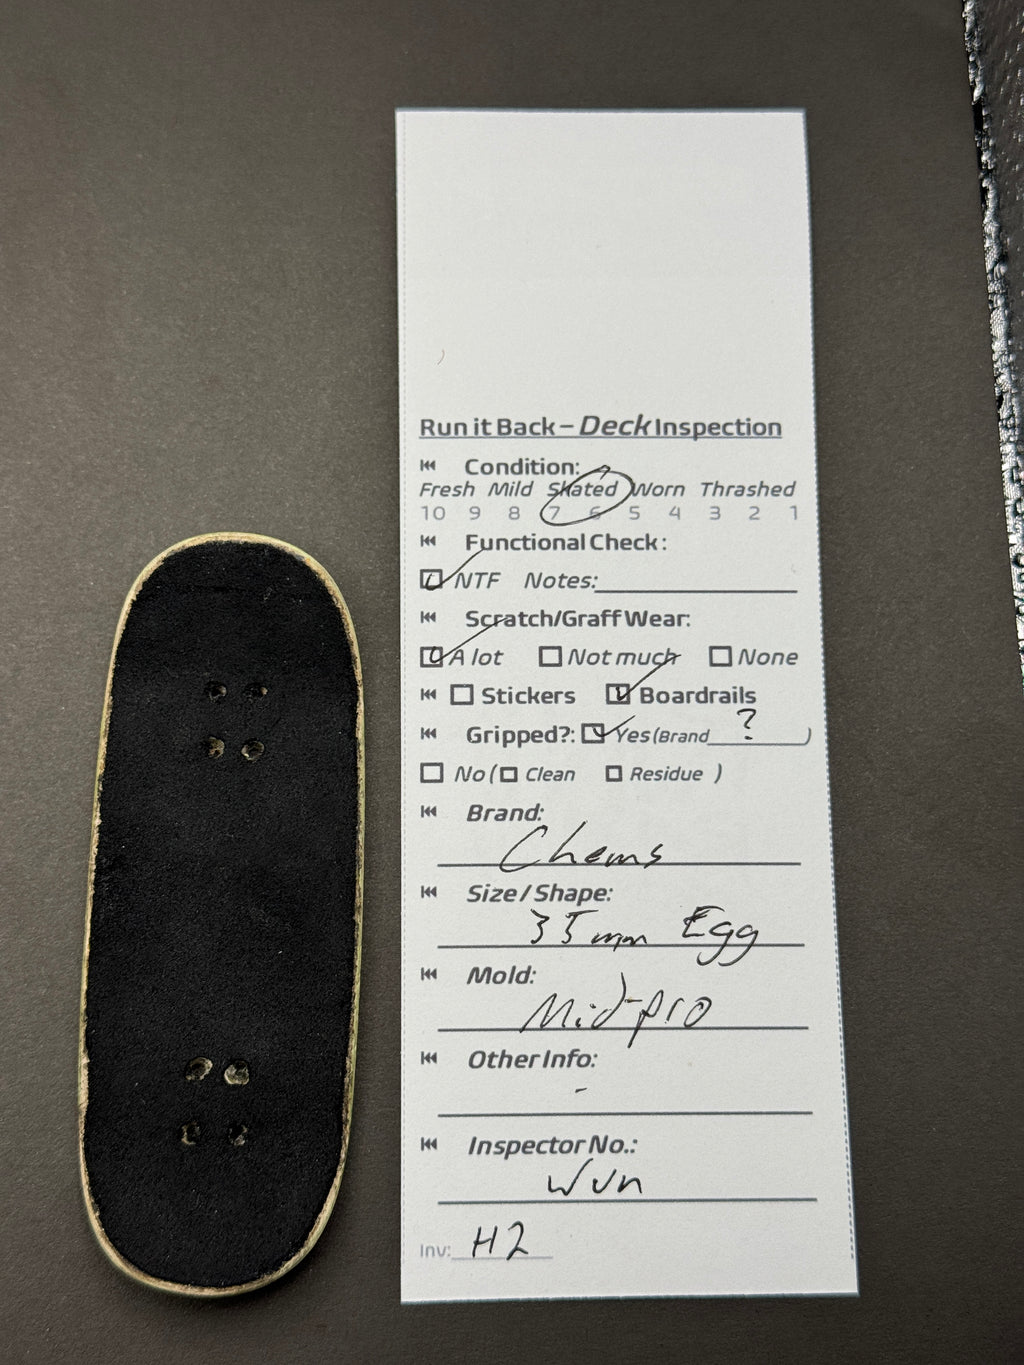 Run it Back – Deck Inspection
Condition:
Fresh Mild Skated Worn Thrashed
10 9 8 7 6 5 4 3 2 1
Functional Check:
NTF Notes:
Scratch/Graff Wear:
A lot Not much None
Stickers Boardrails
Gripped?: Yes (Brand ? )
No ( Clean Residue )
Brand:
Chems
Size / Shape:
35mm Egg
Mold:
Mid-pro
Other Info:
-
Inspector No.:
Wun
Inv: H2